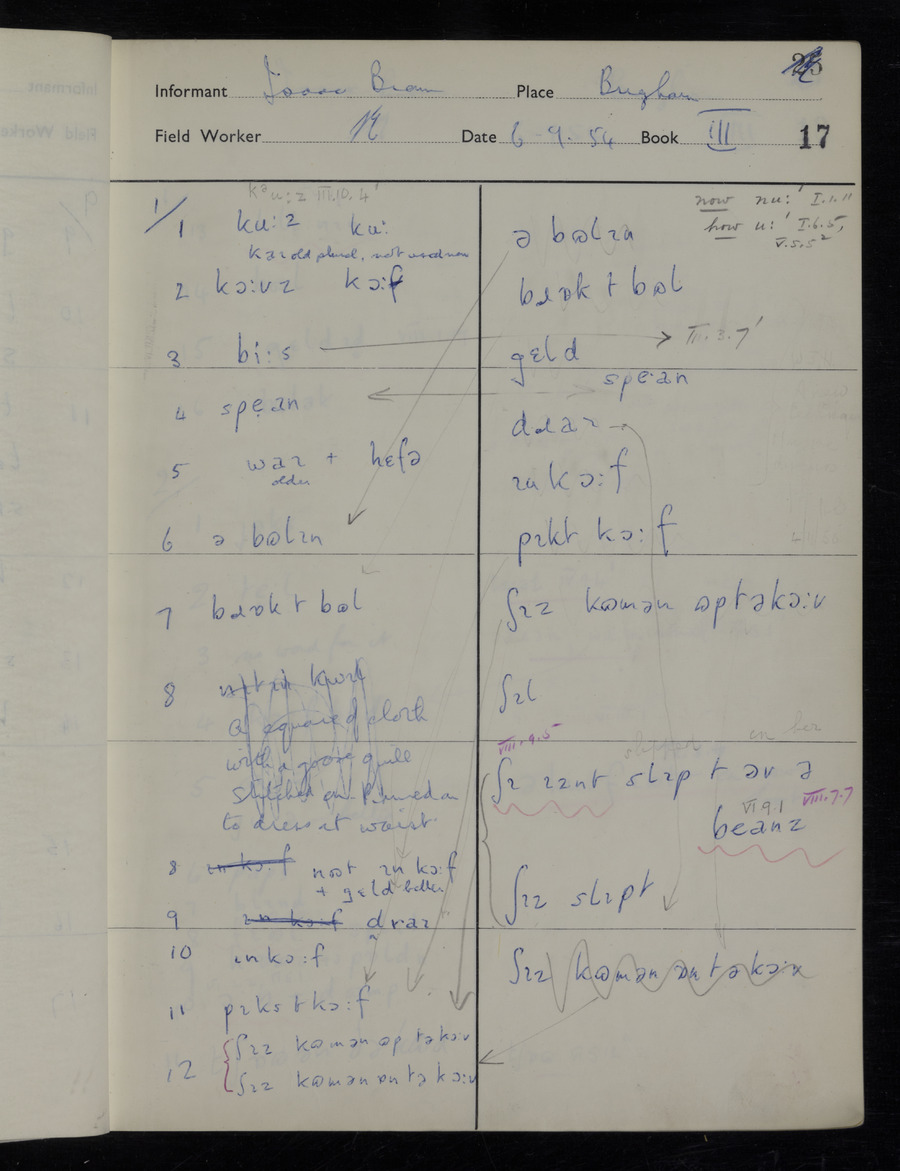 Informant Isaac Brown Place Brigham
Field Worker Date 6 - 9. 54 Book III 17
1/
kᵊu:z III.10.4'
1 ku:z ku:
kaɪ old plural, not used now
2 kɔ:vz kɔ:f
3 bi:s
4 speạn
5 waɪ + hɛfə
older
6 ə bɷlɪn
7 bɹɒk t bɷl
8
a square of cloth
with a goose quill
stitched on & turned on
to dress at waist
8 ɪn kɔ:f nɒt ɪn kɔ:f
+ gɛld better
9 ɪn kɔ:f dɹaɪ
10 ɪnkɔ:f
11 pɪks t kɔ:f
12 ʃɪz kɷmən ɷp tə kɔ:v
ʃɪz kɷmən ɒn tə kɔ:v
now nu:' I.1.11
how u:' I.6.5,
V.5.5²
ə bɷlɪn
bɹɒk t bɷl
III.3.7'
gɛld
speạn
dɹaɪ
ɪn kɔ:f
pɪkt kɔ:f
ʃɪz kɷmən ɷp tə kɔ:v
ʃɪl
VIII.9.5
slipped on her
ʃɪ ɪznt slɪp t əv ə
VI 9.1 VIII.7.7
beanz
ʃɪz slɪpt
ʃɪz kɷmən ɒn tə kɔ:v